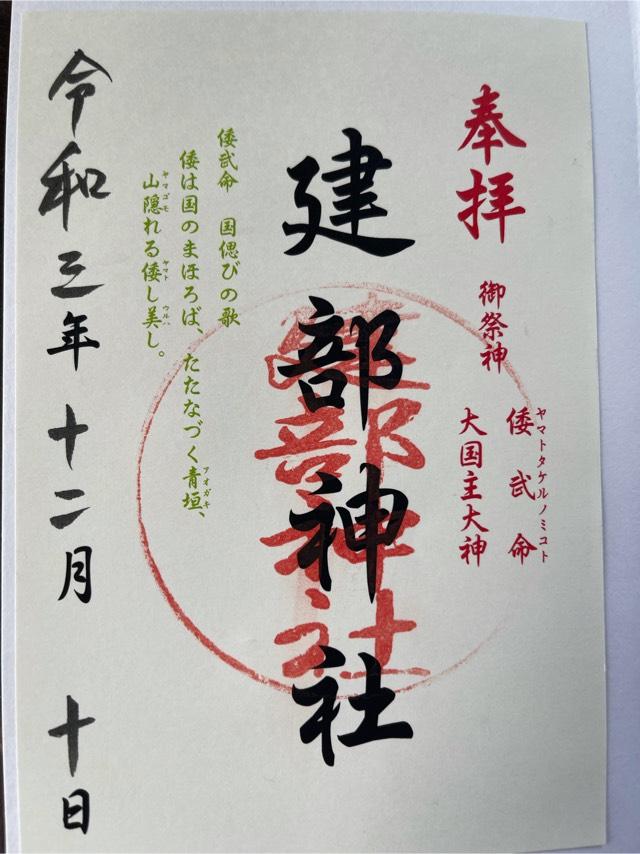 奉拝
御祭神
ヤマトタケルノミコト
倭武命
大国主大神
建部神社
建部神社
倭武命 国偲びの歌
倭は国のまほろば、たたなづく青垣、
アオガキ
山隠れる倭し美し。
ヤマゴモ ヤマト ウルハ
令和三年十二月 十日